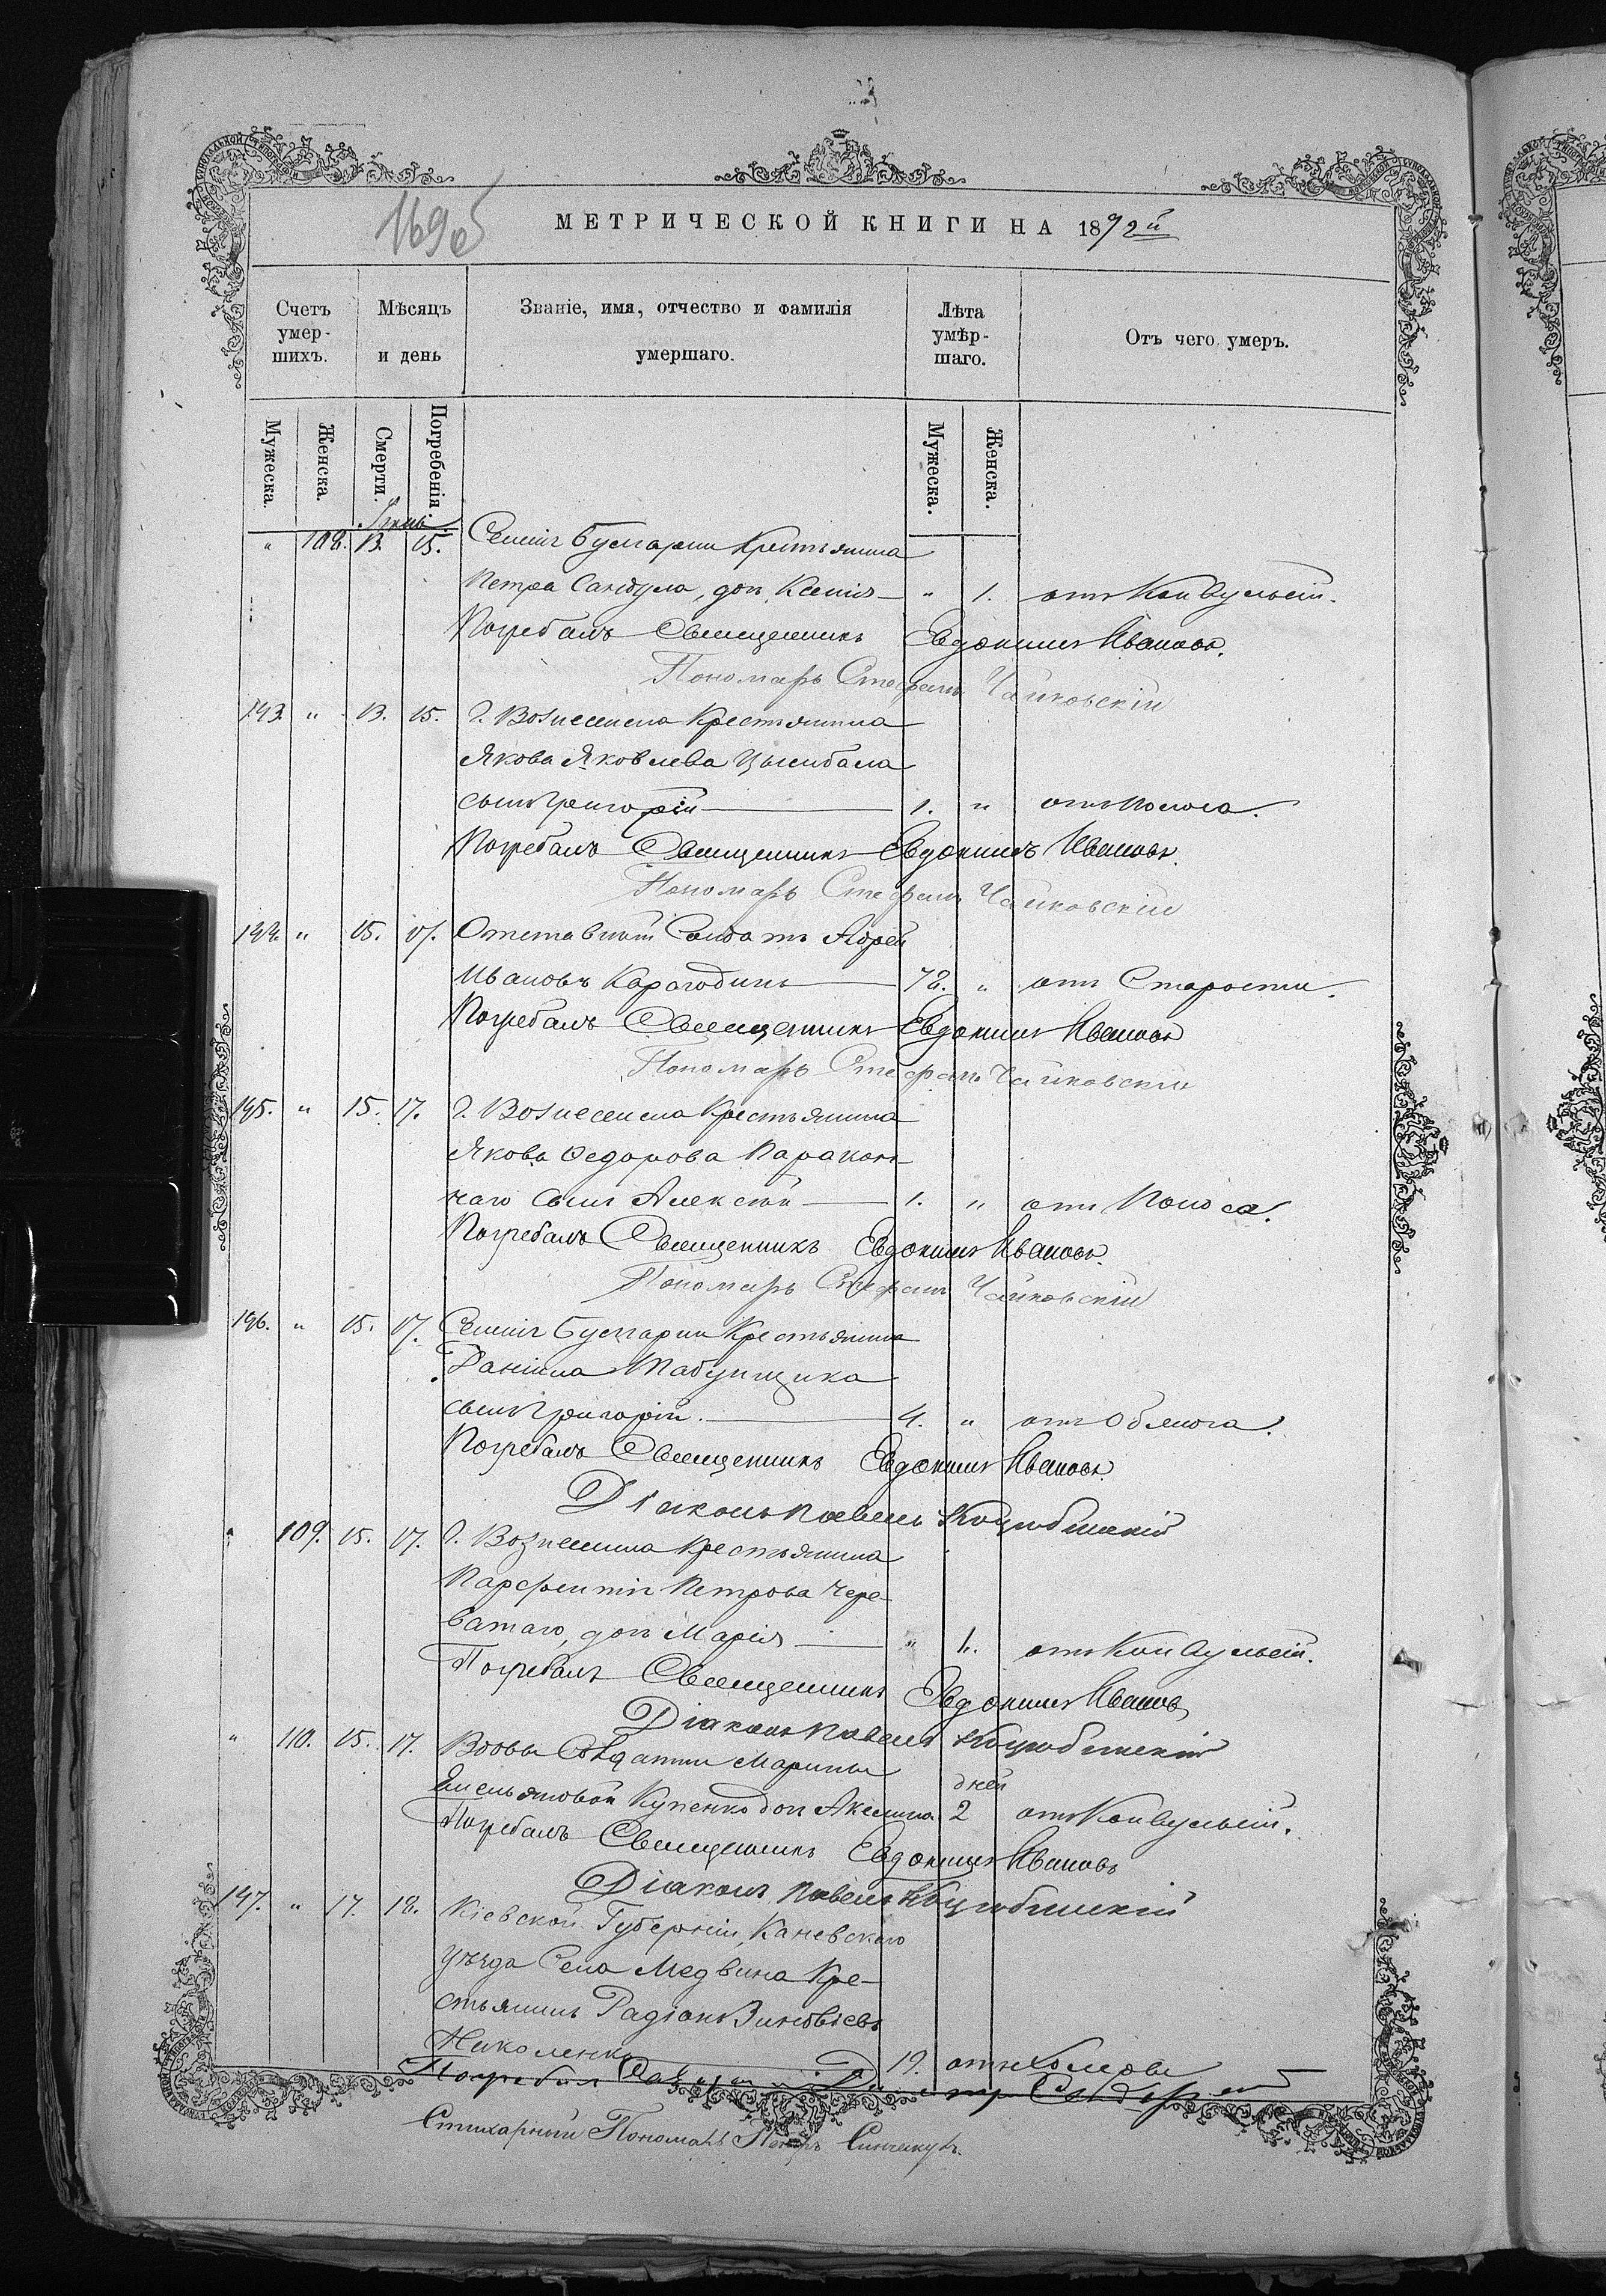 169 об
МЕТРИЧЕСКОЙ КНИГИ НА 1892й
Счетъ умер-шихъ.
Мѣсяцъ и день
Званіе, имя, отчество и фамилія умершаго.
Лѣта умѣр-шаго.
Отъ чего умеръ.
Мужеска.
Женска.
Смерти.
Погребенія.
Мужеска.
Женска.
" 108. 13. 15. Селенія Булгарки Крестьянина
Петра Сандула, дочь Ксенія — " 1. отъ Конвульсій.
Погребалъ Священникъ Евдокимъ Ивановъ.
Пономарь Стефанъ Чайковскій
143. " 13. 15. г. Вознесенска Крестьянина
Якова Яковлева Цымбала
сынъ Григорій — 1. " отъ Поноса.
Погребалъ Священникъ Евдокимъ Ивановъ.
Пономарь Стефанъ Чайковскій
144. " 15. 17. Отставный Солдатъ
Ивановъ Карагодинъ — 78. " отъ Старости.
Погребалъ Священникъ Евдокимъ Ивановъ
Пономарь Стефанъ Чайковскій
145. " 15. 17. г. Вознесенска Крестьянина
Якова Федорова
чаго сынъ Алексѣй — 1. " отъ Поноса.
Погребалъ Священникъ Евдокимъ Ивановъ.
Пономарь Стефанъ Чайковскій
146. " 15. 17. Селенія Булгарки Крестьянина
Даніила Табунщика
сынъ Григорій. — 4. " отъ
Погребалъ Священникъ Евдокимъ Ивановъ.
Діаконъ Павелъ Коцюбинскій
" 109. 15. 17. г. Вознесенска Крестьянина
Парфентія Петрова Чере-
ватаго, дочь Марія — " 1. отъ Конвульсій.
Погребалъ Священникъ Евдокимъ Ивановъ
Діаконъ Павелъ Коцюбинскій
" 110. 15. 17. Вдовы Солдатки Марины
дней
Емельяновой Купенко дочь Акилина 2 отъ Конвульсій.
Погребалъ Священникъ Евдокимъ Ивановъ
Діаконъ Павелъ Коцюбинскій
147. " 17. 18. Кіевской Губерніи, Каневскаго
уѣзда Села Медвина Кре-
стьянинъ Радіонъ Зиновьевъ
Николенко — 19. отъ Холеры
Погребалъ Священникъ
Стихарный Пономарь Петръ